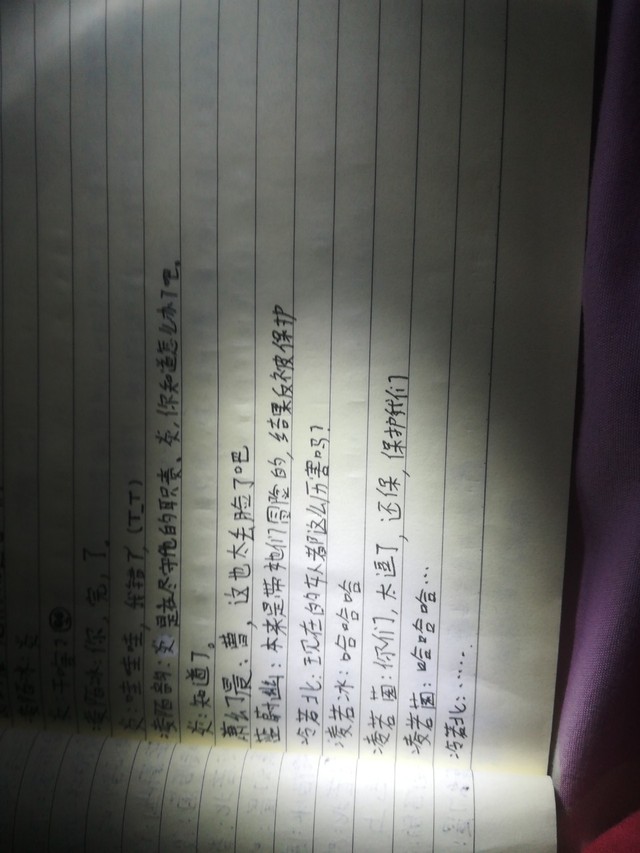 炎:干啥?
凌若冰:你,完,了。
炎:哇哇哇,我错了,(T_T)
是在尽守他的职责、炎,你知道怎么办了吧。
炎:知道了。
:曹,这也太丢脸了吧
:本来是带她们冒险的,结果反被保护
冷若北:现在的女人都这么厉害吗?
凌若冰:哈哈哈哈
凌若茵:你们,太逗了,还保,保护我们
凌若茵:哈哈哈…
冷若北:……